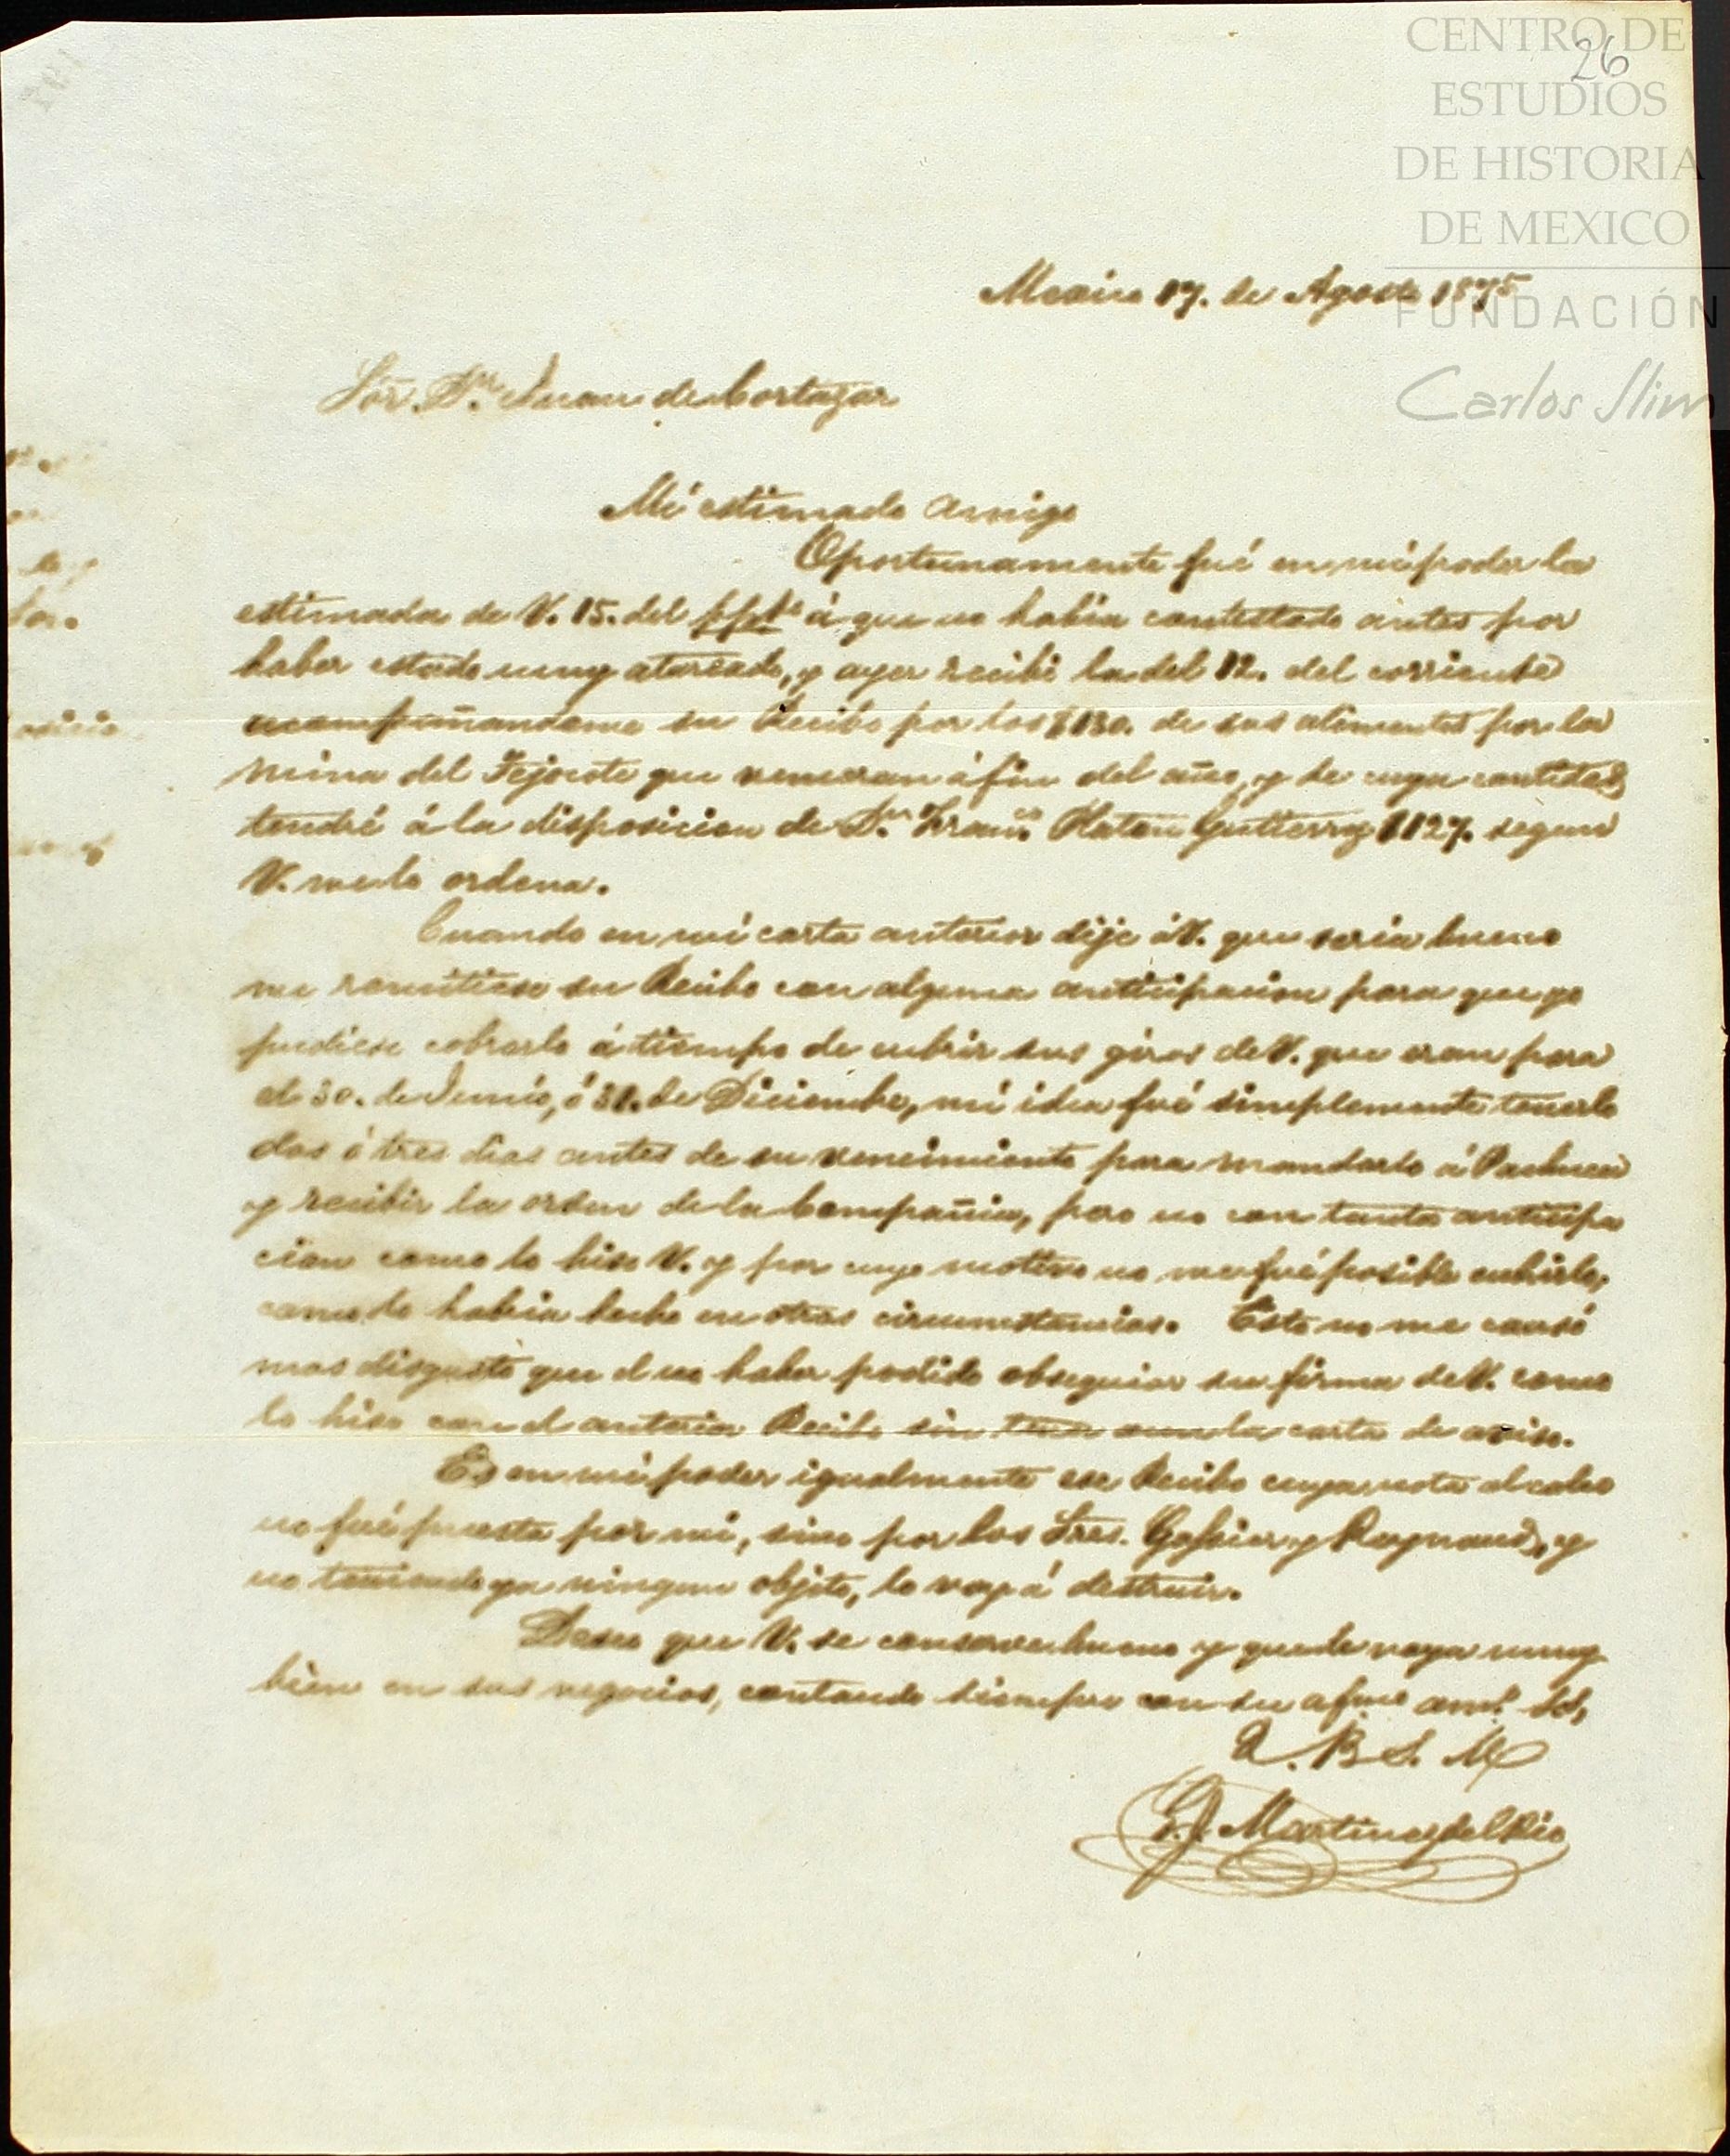 CENTRO DE
26
ESTUDIOS
DE HISTORIA
DE MEXICO
FUNDACIÓN
Carlos Slim
Mexico 17. de Agosto 1875
Sōr. Dn. Juan de Cortazar
Mi estimado amigo
Oportunamente fué en mi poder la
estimada de V. 15. del ppdo á que no habia contestado antes por
haber estado muy atareado, y ayer recibi la del 12. del corriente
acompañandome su Recibo por los $130. de sus alimentos por la
mina del Tejocote que venceran á fin del año, y de cuya cantidad
tendré á la disposicion de Dn. Franco. Platon Gutierrez $127. segun
V. me lo ordena.
Cuando en mi carta anterior dije á V. que seria bueno
me remitiese su Recibo con alguna anticipacion para que yo
pudiese cobrarlo á tiempo de cubrir sus giros de V. que eran para
el 30. de Junio, ó 31. de Diciembre, mi idea fué simplemente tenerlo
dos ó tres dias antes de su vencimiento para mandarlo á Pachuca
y recibir la orden de la Compañia, pero no con tanta anticipa
cion como lo hiso V. y por cuyo motivo no me fué posible cubrirlo,
como lo habria hecho en otras circumstancias. Esto no me causó
mas disgusto que el no haber podido obsequiar su firma de V. como
lo hise con el anterior Recibo sin tener aun la carta de aviso.
Es en mi poder igualmente ese Recibo cuya nota al calce
no fué puesta por mi, sino por los Sres. y Raynaud, y
no teniendo ya ningun objeto, lo voy á destruir.
Deseo que V. se conserve bueno y que le vaya muy
bien en sus negocios, contando siempre con su afmo. amo. SS,
Q. B. S. M
G. J. Martinez del Rio